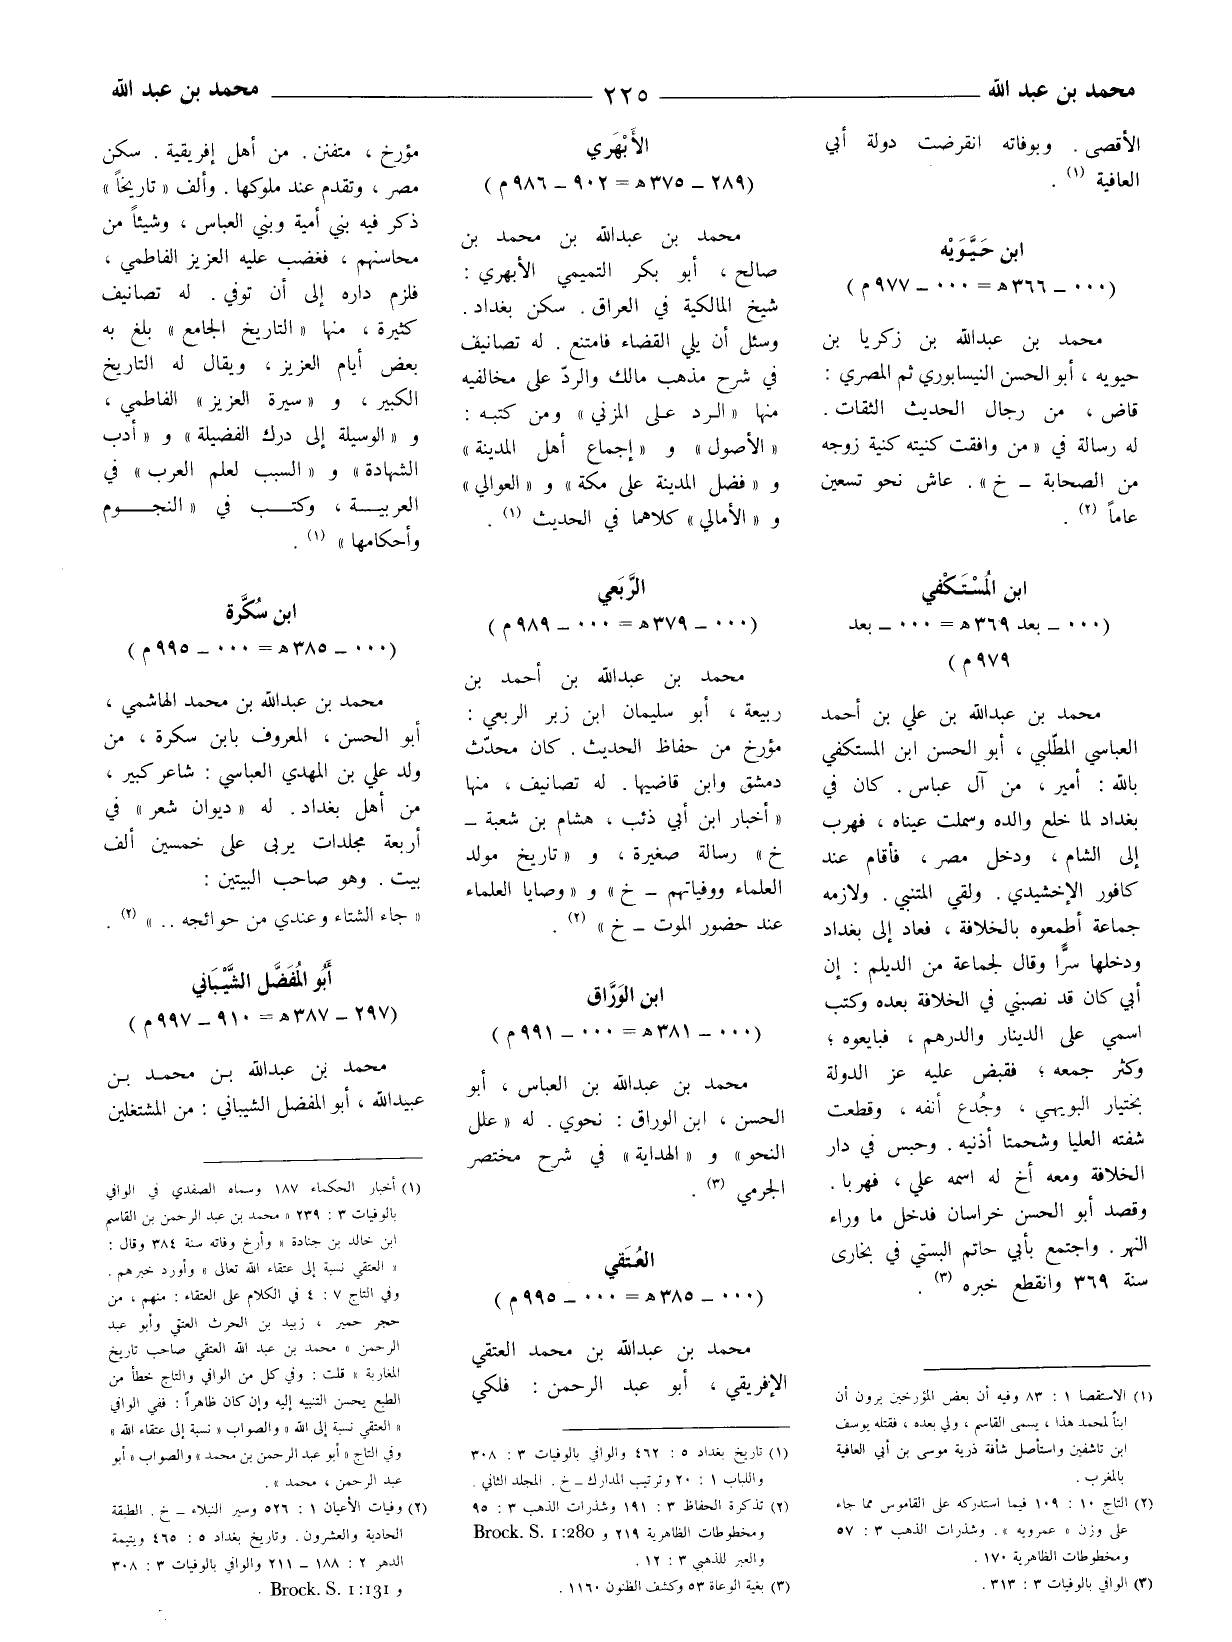 محمد بن عبد الله ـــــــ ٢٢٥ ـــــــ محمد بن عبد الله
الأقصى . وبوفاته انقرضت دولة أبي
العافية (١) .
ابن حَيَّوَيْه
(٠٠٠ ــ ٣٦٦ هـ = ٠٠٠ ــ ٩٧٧ م)
محمد بن عبدالله بن زكريا بن
حيويه ، أبو الحسن النيسابوري ثم المصري :
قاض ، من رجال الحديث الثقات .
له رسالة في « من وافقت كنيته كنية زوجه
من الصحابة ــ خ » . عاش نحو تسعين
عاماً (٢) .
ابن المُسْتَكْفي
(٠٠٠ ــ بعد ٣٦٩ هـ = ٠٠٠ ــ بعد
٩٧٩ م)
محمد بن عبدالله بن علي بن أحمد
العباسي المطّلبي ، أبو الحسن ابن المستكفي
بالله : أمير ، من آل عباس . كان في
بغداد لما خلع والده وسملت عيناه ، فهرب
إلى الشام ، ودخل مصر ، فأقام عند
كافور الإخشيدي . ولقي المتنبي . ولازمه
جماعة أطمعوه بالخلافة ، فعاد إلى بغداد
ودخلها سرًّا وقال لجماعة من الديلم : إن
أبي كان قد نصبني في الخلافة بعده وكتب
اسمي على الدينار والدرهم ، فبايعوه ؛
وكثر جمعه ؛ فقبض عليه عز الدولة
بختيار البويهي ، وجُدع أنفه ، وقطعت
شفته العليا وشحمتا أذنيه . وحبس في دار
الخلافة ومعه أخ له اسمه علي ، فهربا .
وقصد أبو الحسن خراسان فدخل ما وراء
النهر . واجتمع بأبي حاتم البستي في بخارى
سنة ٣٦٩ وانقطع خبره (٣) .
(١) الاستقصا ١ : ٨٣ وفيه أن بعض المؤرخين يرون أن
ابناً لمحمد هذا ، يسمى القاسم ، ولي بعده ، فقتله يوسف
ابن تاشفين واستأصل شأفة ذرية موسى بن أبي العافية
بالمغرب .
(٢) التاج ١٠ : ١٠٩ فيما استدركه على القاموس مما جاء
على وزن « عمرويه » . وشذرات الذهب ٣ : ٥٧
ومخطوطات الظاهرية ١٧٠ .
(٣) الوافي بالوفيات ٣ : ٣١٣ .
الأَبْهَري
(٢٨٩ ــ ٣٧٥ هـ = ٩٠٢ ــ ٩٨٦ م)
محمد بن عبدالله بن محمد بن
صالح ، أبو بكر التميمي الأبهري :
شيخ المالكية في العراق . سكن بغداد .
وسئل أن يلي القضاء فامتنع . له تصانيف
في شرح مذهب مالك والردّ على مخالفيه
منها « الرد على المزني » ومن كتبه :
« الأصول » و « إجماع أهل المدينة »
و « فضل المدينة على مكة » و « العوالي »
و « الأمالي » كلاهما في الحديث (١) .
الرَّبَعي
(٠٠٠ ــ ٣٧٩ هـ = ٠٠٠ ــ ٩٨٩ م)
محمد بن عبدالله بن أحمد بن
ربيعة ، أبو سليمان ابن زبر الربعي :
مؤرخ من حفاظ الحديث . كان محدّث
دمشق وابن قاضيها . له تصانيف ، منها
« أخبار ابن أبي ذئب ، هشام بن شعبة ــ
خ » رسالة صغيرة ، و « تاريخ مولد
العلماء ووفياتهم ــ خ » و « وصايا العلماء
عند حضور الموت ــ خ » (٢) .
ابن الوَرَّاق
(٠٠٠ ــ ٣٨١ هـ = ٠٠٠ ــ ٩٩١ م)
محمد بن عبدالله بن العباس ، أبو
الحسن ، ابن الوراق : نحوي . له « علل
النحو » و « الهداية » في شرح مختصر
الجرمي (٣) .
العُتَقي
(٠٠٠ ــ ٣٨٥ هـ = ٠٠٠ ــ ٩٩٥ م)
محمد بن عبدالله بن محمد العتقي
الإفريقي ، أبو عبد الرحمن : فلكي
(١) تاريخ بغداد ٥ : ٤٦٢ والوافي بالوفيات ٣ : ٣٠٨
واللباب ١ : ٢٠ وترتيب المدارك ــ خ . المجلد الثاني .
(٢) تذكرة الحفاظ ٣ : ١٩١ وشذرات الذهب ٣ : ٩٥
ومخطوطات الظاهرية ٢١٩ و Brock. S. 1:280
والعبر للذهبي ٣ : ١٢ .
(٣) بغية الوعاة ٥٣ وكشف الظنون ١١٦٠ .
مؤرخ ، متفنن . من أهل إفريقية . سكن
مصر ، وتقدم عند ملوكها . وألف « تاريخاً »
ذكر فيه بني أمية وبني العباس ، وشيئاً من
محاسنهم ، فغضب عليه العزيز الفاطمي ،
فلزم داره إلى أن توفي . له تصانيف
كثيرة ، منها « التاريخ الجامع » بلغ به
بعض أيام العزيز ، ويقال له التاريخ
الكبير ، و « سيرة العزيز » الفاطمي ،
و « الوسيلة إلى درك الفضيلة » و « أدب
الشهادة » و « السبب لعلم العرب » في
العربيــة ، وكتــب في « النجــوم
وأحكامها » (١) .
ابن سُكَّرة
(٠٠٠ ــ ٣٨٥ هـ = ٠٠٠ ــ ٩٩٥ م)
محمد بن عبدالله بن محمد الهاشمي ،
أبو الحسن ، المعروف بابن سكرة ، من
ولد علي بن المهدي العباسي : شاعر كبير ،
من أهل بغداد . له « ديوان شعر » في
أربعة مجلدات يربى على خمسين ألف
بيت . وهو صاحب البيتين :
« جاء الشتاء وعندي من حوائجه .. » (٢) .
أَبُو المُفَضَّل الشَّيْبَاني
(٢٩٧ ــ ٣٨٧ هـ = ٩١٠ ــ ٩٩٧ م)
محمد بن عبدالله بـن محمـد بـن
عبيدالله ، أبو المفضل الشيباني : من المشتغلين
(١) أخبار الحكماء ١٨٧ وسماه الصفدي في الوافي
بالوفيات ٣ : ٢٣٩ « محمد بن عبد الرحمن بن القاسم
ابن خالد بن جنادة » وأرخ وفاته سنة ٣٨٤ وقال :
« العتقي نسبة إلى عتقاء الله تعالى » وأورد خبرهم .
وفي التاج ٧ : ٤ في الكلام على العتقاء : منهم ، من
حجر حمير ، زبيد بن الحرث العتقي وأبو عبد
الرحمن « محمد بن عبد الله العتقي صاحب تاريخ
المغاربة » قلت : وفي كل من الوافي والتاج خطأ من
الطبع يحسن التنبيه إليه وإن كان ظاهراً : ففي الوافي
« العتقي نسبة إلى الله » والصواب « نسبة إلى عتقاء الله »
وفي التاج « أبو عبد الرحمن بن محمد » والصواب « أبو
عبد الرحمن ، محمد » .
(٢) وفيات الأعيان ١ : ٥٢٦ وسير النبلاء ــ خ . الطبقة
الحادية والعشرون . وتاريخ بغداد ٥ : ٤٦٥ ويتيمة
الدهر ٢ : ١٨٨ ــ ٢١١ والوافي بالوفيات ٣ : ٣٠٨
و Brock. S. 1:131 .